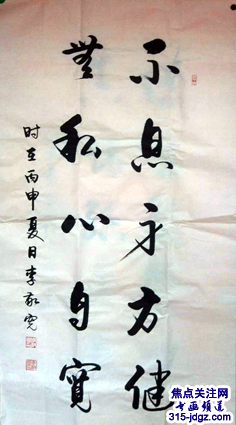 不息身方健
無私心自寬
时在丙申夏日李敬寬
焦点关注网
书画频道
315-jdgz.com